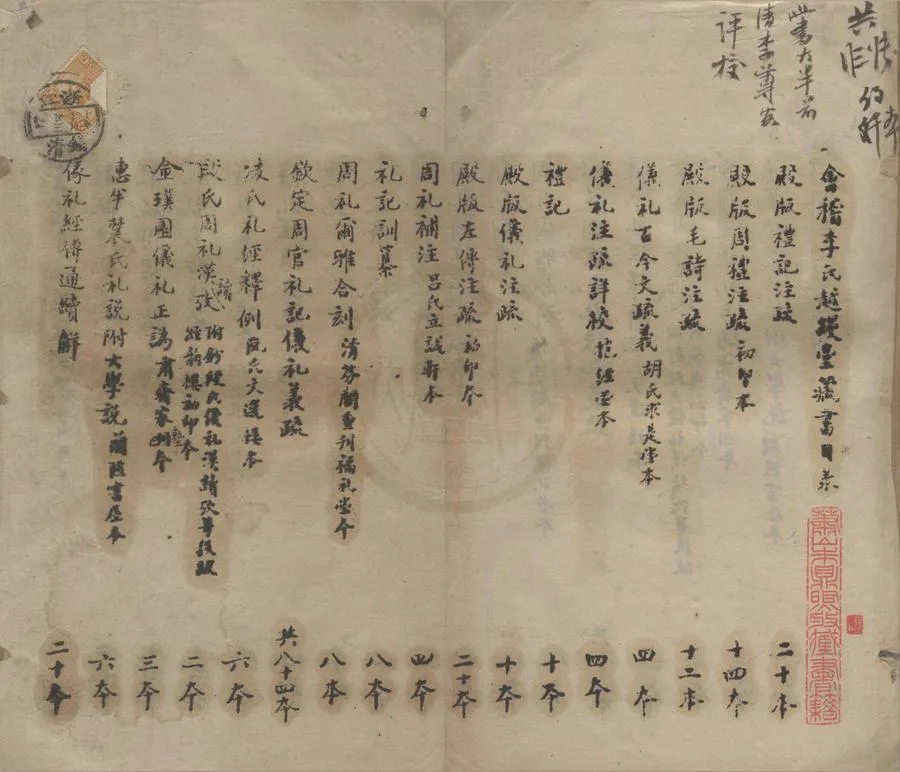 共
此書大半前
清李尊客
評校
會稽李氏越縵堂藏書目录
殿版禮記注疏 二十本
殿版周禮注疏 初印本 十四本
殿版毛詩注疏 十二本
儀礼古今文疏義 胡氏求是堂本 四本
儀礼注疏詳校 抱经堂本 四本
禮記 十本
殿版儀礼注疏 十本
殿版左傳注疏 初印本 二十本
周礼補注 吕氏立誠軒本 四本
礼記訓纂 八本
周礼爾雅合刻 清芬閣重刊福礼堂本 八本
欽定周官礼記儀礼義疏 共八十四本
凌氏礼經釋例 阮氏文選楼本 六本
段氏周礼漢讀攷 附刻段氏儀礼漢讀攷等段跋 经韵楼初印本 二本
金璞園儀礼正譌 肃齋家塾本 三本
惠半農氏礼説附大學説 蘭陔書屋本 六本
儀礼經傳通續解 二十本
蕭山朱鼎煦收藏書籍
浙
清